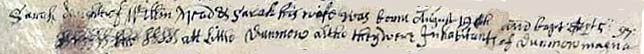 Sarah daughter of William Mead & Sarah his wife was born August 19th and bapt Sept 97
at Little Dunmow altho they were Inhabitants of Dunmow magna